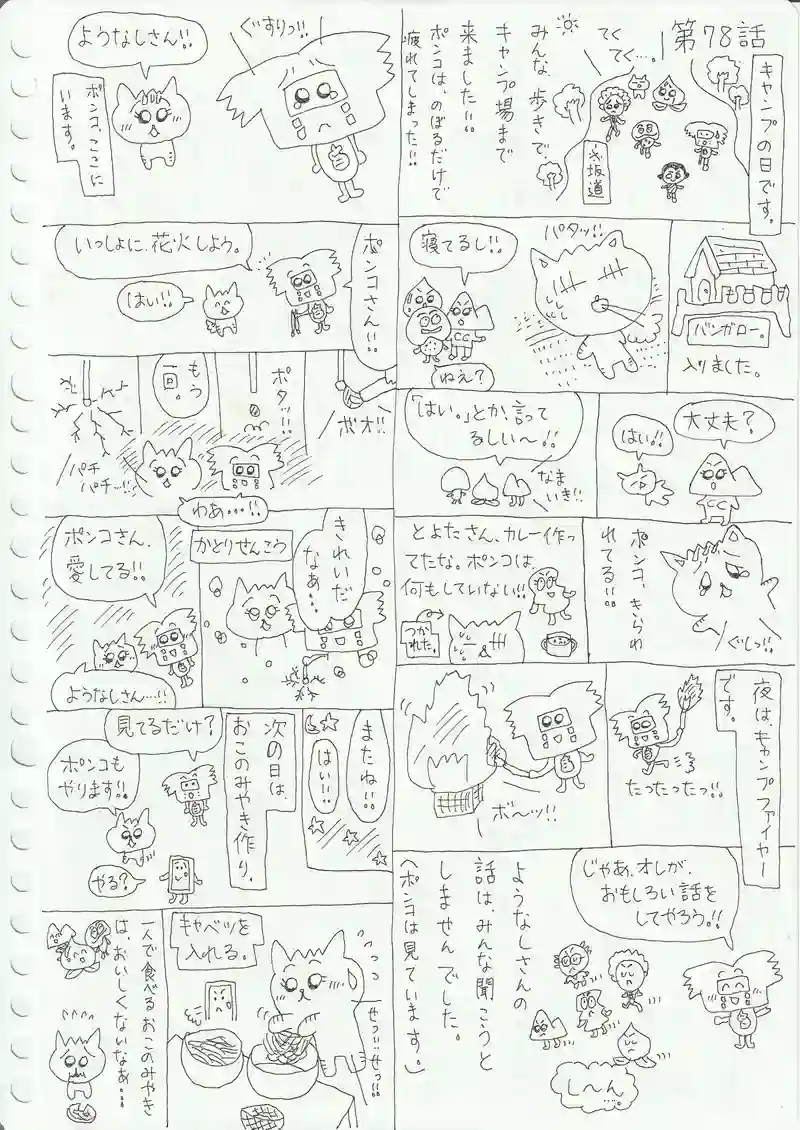 第78話
キャンプの日です。
てく
てく…。
みんな、歩きで、
キャンプ場まで
来ました!!
ポンコは、のぼるだけで
疲れてしまった!!
坂道
バンガロー。
入りました。
パタッ!!
寝てるし!!
ねえ?
大丈夫?
はい!!
「はい。」とか、言って
るしい〜!!
なま
いき!!
ポンコ、きらわ
れてる!!
ぐしっ!!
とよたさん、カレー作っ
てたな。ポンコは、
何もしていない!!
つか
れた。
夜は、キャンプファイヤー
です。
たったったっ!!
ボ〜ッ!!
じゃあ、オレが、
おもしろい話を
してやろう!!
ようなしさんの
話は、みんな聞こうと
しませんでした。
(ポンコは見ています。)
し〜ん…。
ぐすりっ!!
ようなしさん!!
ポンコ、ここに
います。
ポンコさん!!
いっしょに、花火しよう。
はい!!
ボオ!!
ポタッ!!
もう
一回。
パチ
パチ…!!
わあ…!!
きれいだ
なぁ…。
かとりせんこう
ポンコさん、
愛してる!!
ようなしさん…!!
またね!!
はい!!
次の日は、
おこのみやき作り。
見てるだけ?
ポンコも
やります!!
やる?
キャベツを
入れる。
せっ!!せっ!!
一人で食べるおこのみやき
は、おいしくないなぁ…。